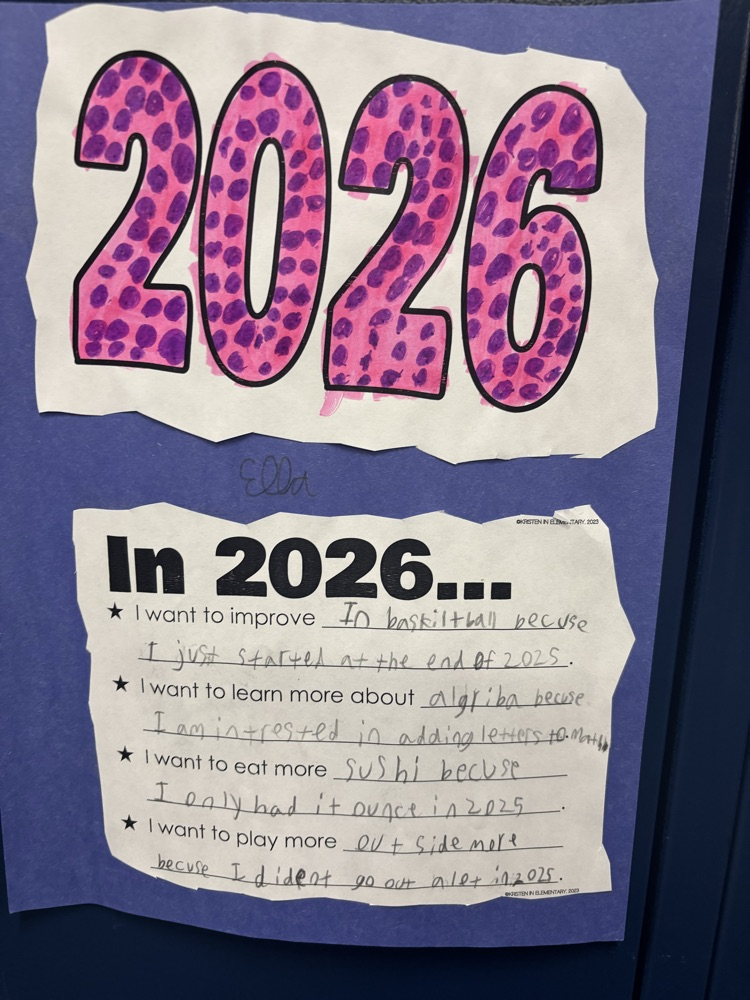 2026
Ella
©KRISTEN IN ELEMENTARY, 2023
In 2026...
★ I want to improve In baskiltball becuse
I just started at the end of 2025.
★ I want to learn more about algriba becuse
I am intrested in adding letters to math.
★ I want to eat more sushi becuse
I only had it ounce in 2025.
★ I want to play more out side more
becuse I dident go out alot in 2025.
©KRISTEN IN ELEMENTARY, 2023